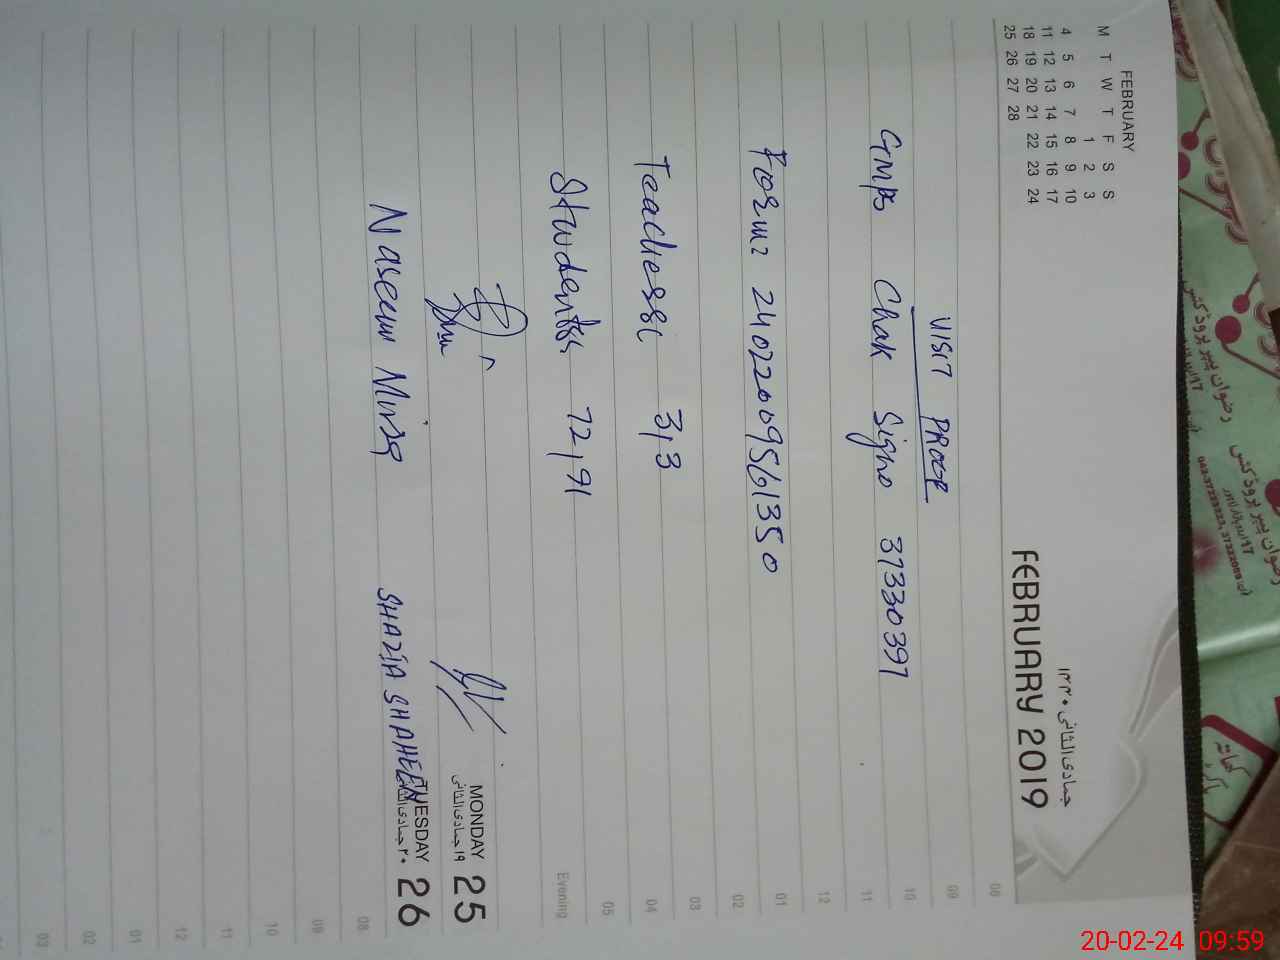 FEBRUARY
M T W T F S S
1 2 3
4 5 6 7 8 9 10
11 12 13 14 15 16 17
18 19 20 21 22 23 24
25 26 27 28
جمادی الثانی ۱۴۴۰
FEBRUARY 2019
VISIT PROOF
08
09
GMPS Chak Signo 37330397
10
11
12
Form: 24022009561350
01
02
03
Teachers: 3/3
04
05
Students: 72/91
Evening
MONDAY 25
۱۹ جمادی الثانی
TUESDAY 26
۲۰ جمادی الثانی
Naseem Mirza SHAZIA SHAHEEN
08
09
10
11
12
01
02
03
رضوان پیپر پروڈکٹس
042-37223222, 37232089
رضوان پیپر پروڈکٹس
20-02-24 09:59